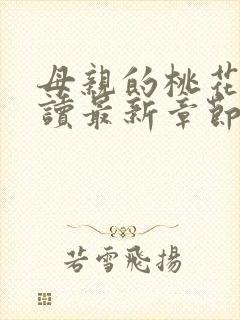 母親的桃花
讀最新章節
若雪飛揚